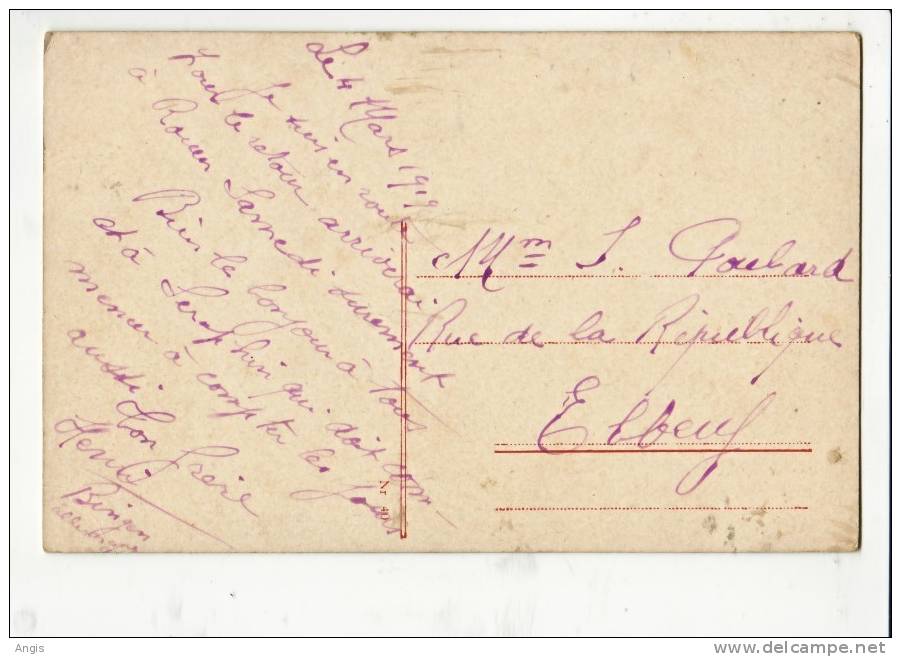 Le 4 Mars 1919
Je suis en route
pour le retour arriverai
à Rouen Samedi surement
Bien le bonjour à tous
et à Seraphin qui doit com-
mencer à compter les jours
aussi Ton frère
Henri
Bingen
Mme S. Poulard
Rue de la République
Elbeuf
Nr 40
Angis
www.delcampe.net